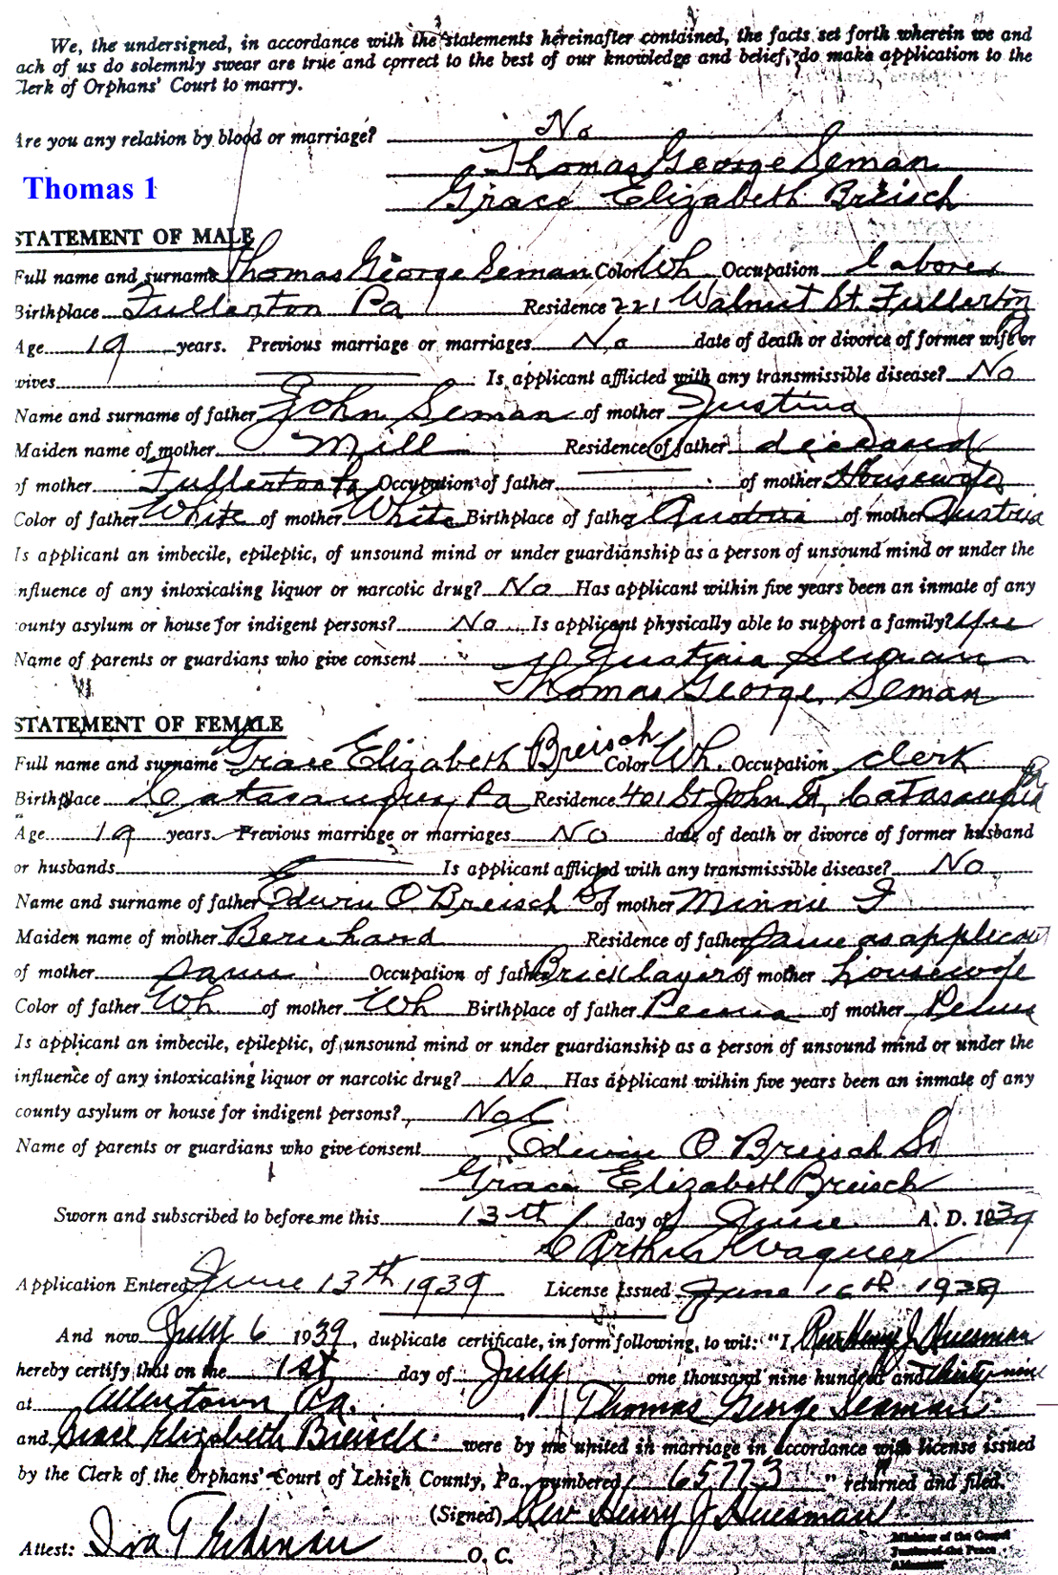 We, the undersigned, in accordance with the statements hereinafter contained, the facts set forth wherein we and
ach of us do solemnly swear are true and correct to the best of our knowledge and belief, do make application to the
Clerk of Orphans' Court to marry.
Are you any relation by blood or marriage? No
Thomas George Seman
Thomas 1
Grace Elizabeth Breisch
STATEMENT OF MALE
Full name and surname Thomas George Seman Color Wh Occupation laborer
Birthplace Fullerton Pa Residence 221 Walnut St. Fullerton Pa
Age 19 years. Previous marriage or marriages No date of death or divorce of former wife or
wives Is applicant afflicted with any transmissible disease? No
Name and surname of father John Seman of mother Justina
Maiden name of mother Mill Residence of father deceased
of mother Fullerton Pa Occupation of father of mother Housewife
Color of father White of mother White Birthplace of father Austria of mother Austria
Is applicant an imbecile, epileptic, of unsound mind or under guardianship as a person of unsound mind or under the
nfluence of any intoxicating liquor or narcotic drug? No Has applicant within five years been an inmate of any
ounty asylum or house for indigent persons? No Is applicant physically able to support a family? Yes
Name of parents or guardians who give consent
Thomas George Seman
STATEMENT OF FEMALE
Full name and surname Grace Elizabeth Breisch Color Wh. Occupation clerk
Birthplace Catasauqua, Pa Residence 401 St John St, Catasauqua Pa
Age 19 years. Previous marriage or marriages No date of death or divorce of former husband
or husbands Is applicant afflicted with any transmissible disease? No
Name and surname of father Edwin O Breisch Sr of mother Minnie I
Maiden name of mother Bernhard Residence of father same as applicant
of mother same Occupation of father Bricklayer of mother housewife
Color of father Wh of mother Wh Birthplace of father Penna of mother Penna
Is applicant an imbecile, epileptic, of unsound mind or under guardianship as a person of unsound mind or under the
influence of any intoxicating liquor or narcotic drug? No Has applicant within five years been an inmate of any
county asylum or house for indigent persons? No
Name of parents or guardians who give consent Edwin O Breisch Sr
Grace Elizabeth Breisch
Sworn and subscribed to before me this 13th day of June A. D. 1939
C Arthur Wagner
Application Entered June 13th 1939 License Issued June 16th 1939
And now July 6 1939, duplicate certificate, in form following, to wit: "I Rev Henry J Huesman
hereby certify that on the 1st day of July one thousand nine hundred and thirty-nine
at Allentown Pa. Thomas George Seaman
and Grace Elizabeth Breisch were by me united in marriage in accordance with license issued
by the Clerk of the Orphans' Court of Lehigh County, Pa., numbered 65773 " returned and filed.
(Signed) Rev Henry J Huesman
Minister of the Gospel
Justice of the Peace
Alderman
Attest: Ira T O. C.